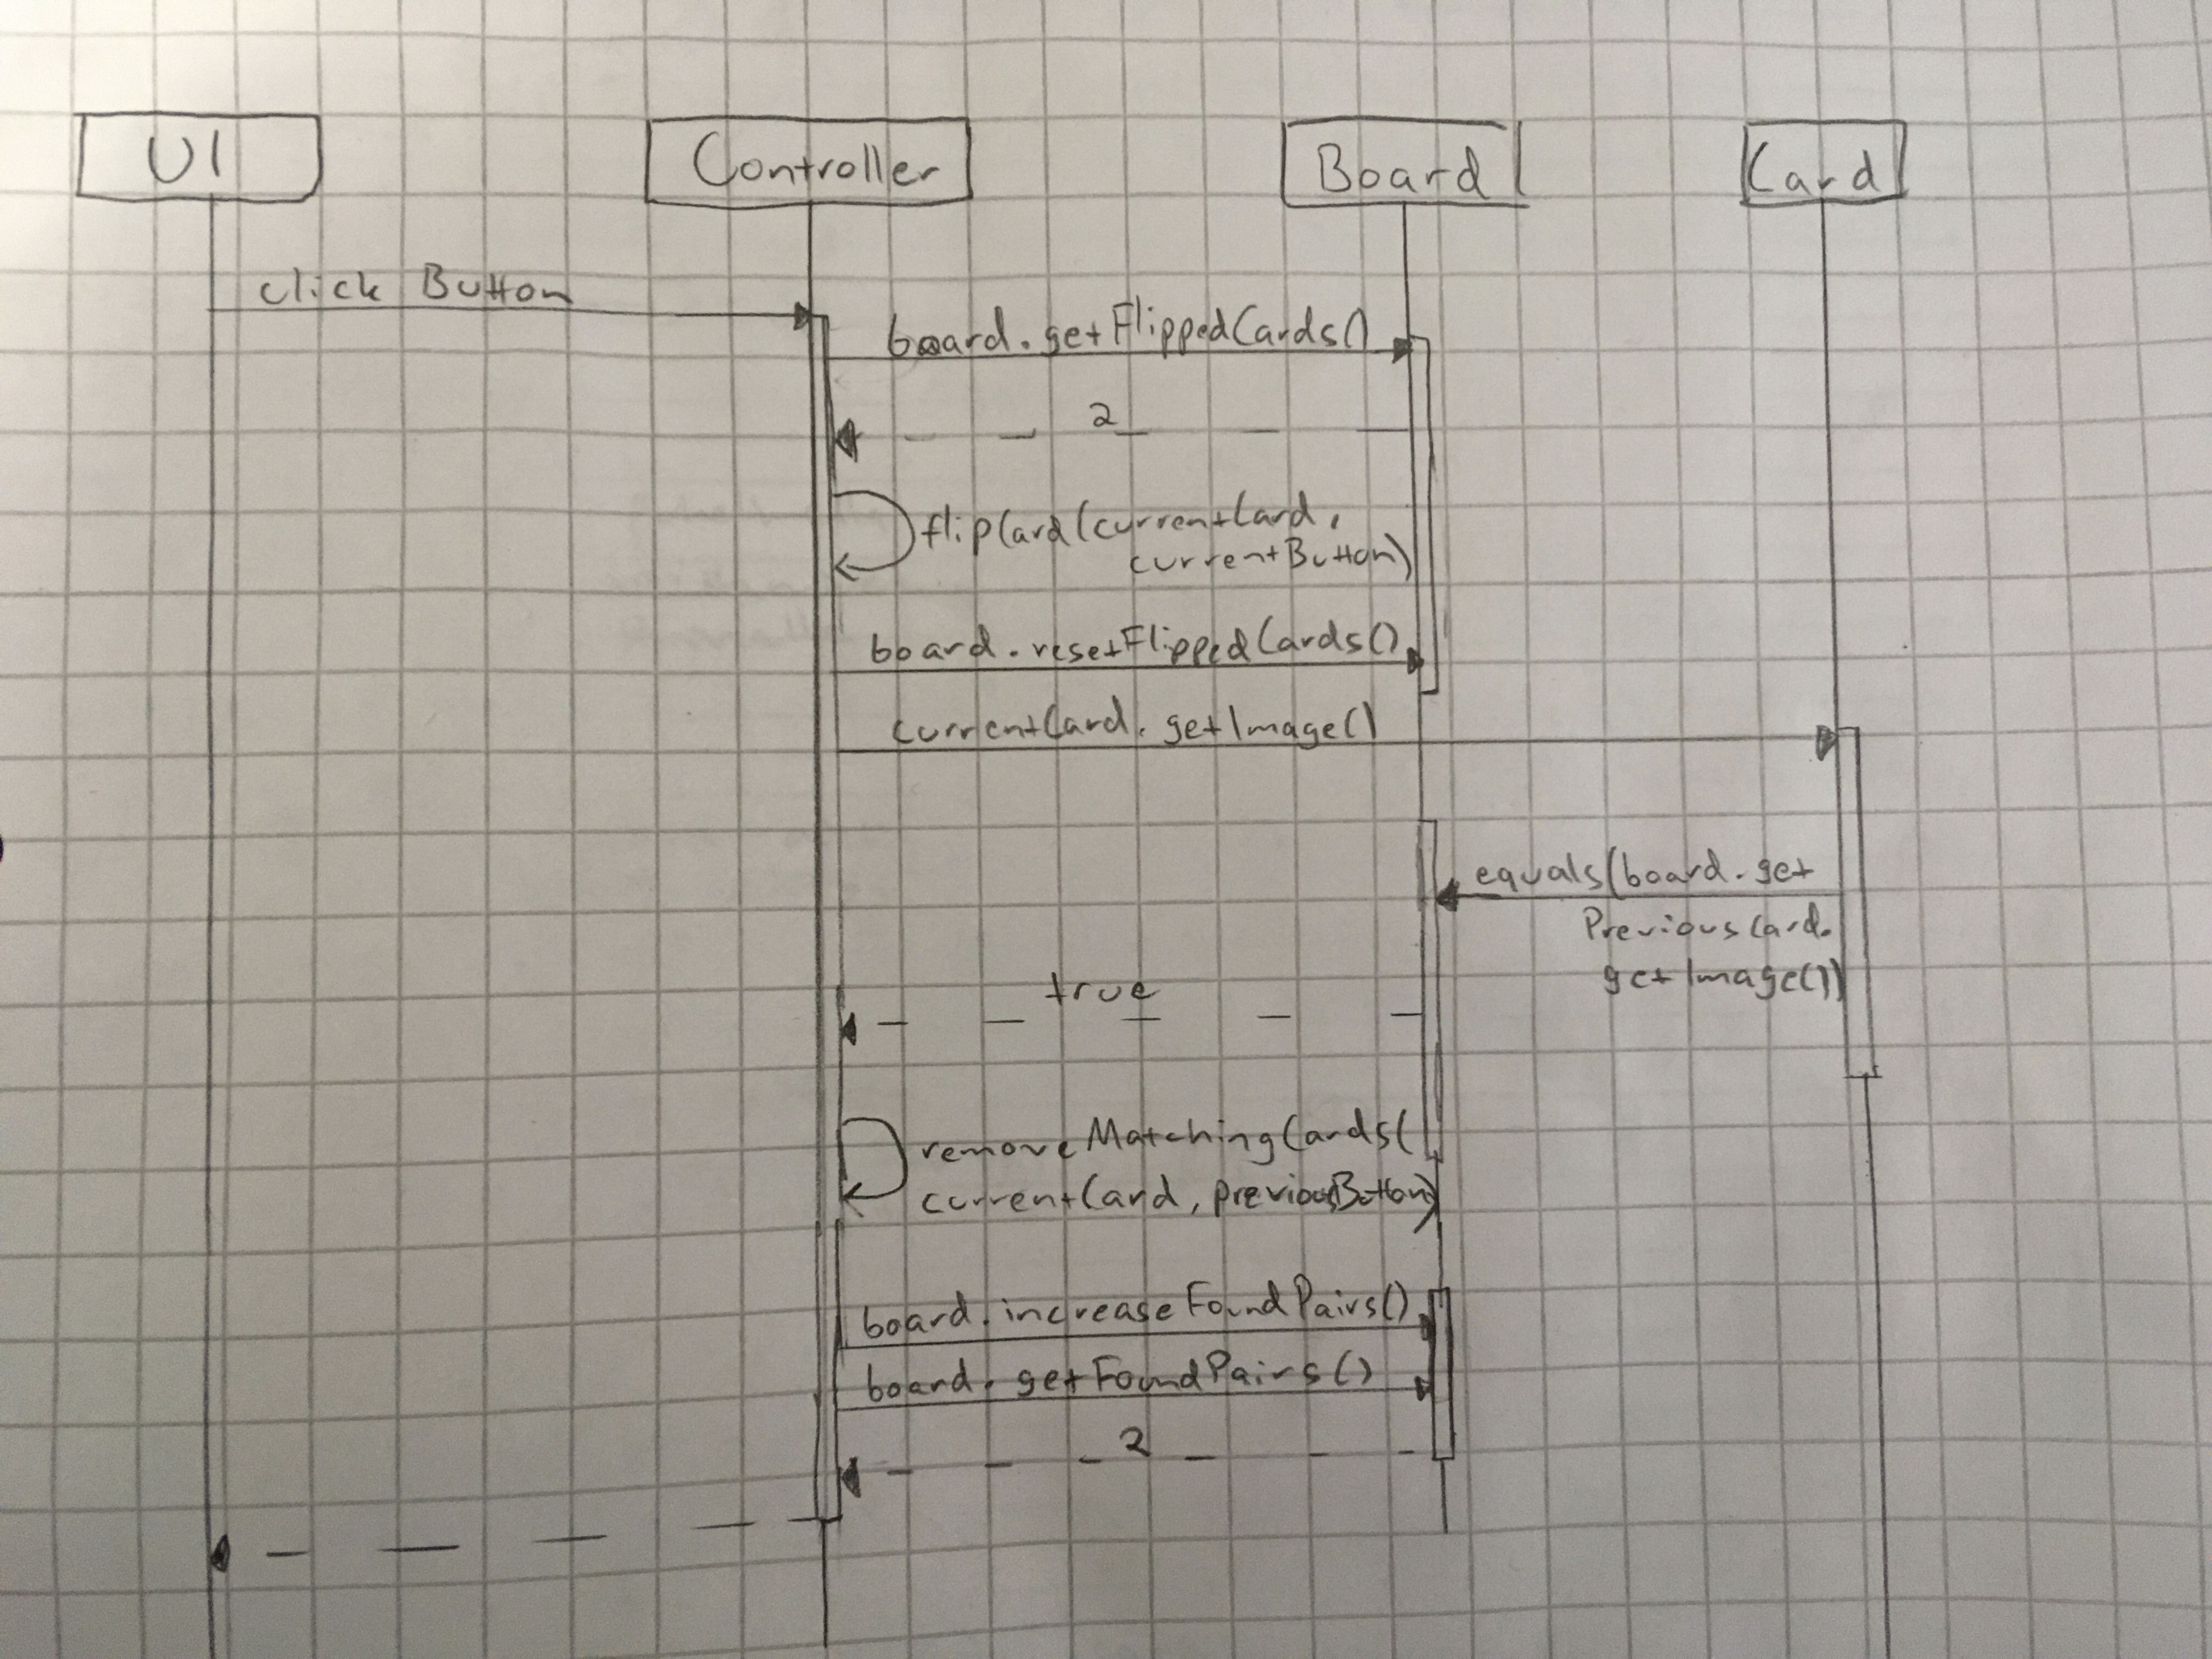 UI
Controller
Board
Card
click Button
board.getFlippedCards()
2
flipCard(currentCard,
currentButton)
board.resetFlippedCards()
currentCard.getImage()
equals(board.get
PreviousCard.
getImage())
true
removeMatchingCards(
currentCard, previousButton)
board.increaseFoundPairs()
board.getFoundPairs()
2